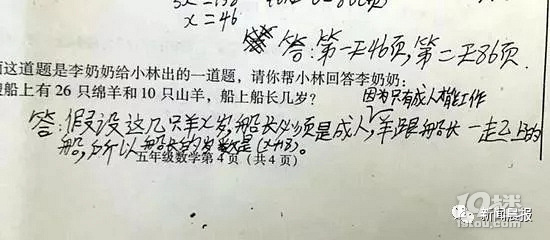 x=46
答:第一天46页,第二天86页.
面这道题是李奶奶给小林出的一道题,请你帮小林回答李奶奶:
船上有 26 只绵羊和 10 只山羊,船上船长几岁?
因为只有成人才能工作
答:假设这几只羊x岁,船长必须是成人,羊跟船长一起上的
船,所以船长的岁数是(x+18)。
五年级数学第 4 页(共 4 页)
新闻晨报
10s1.com